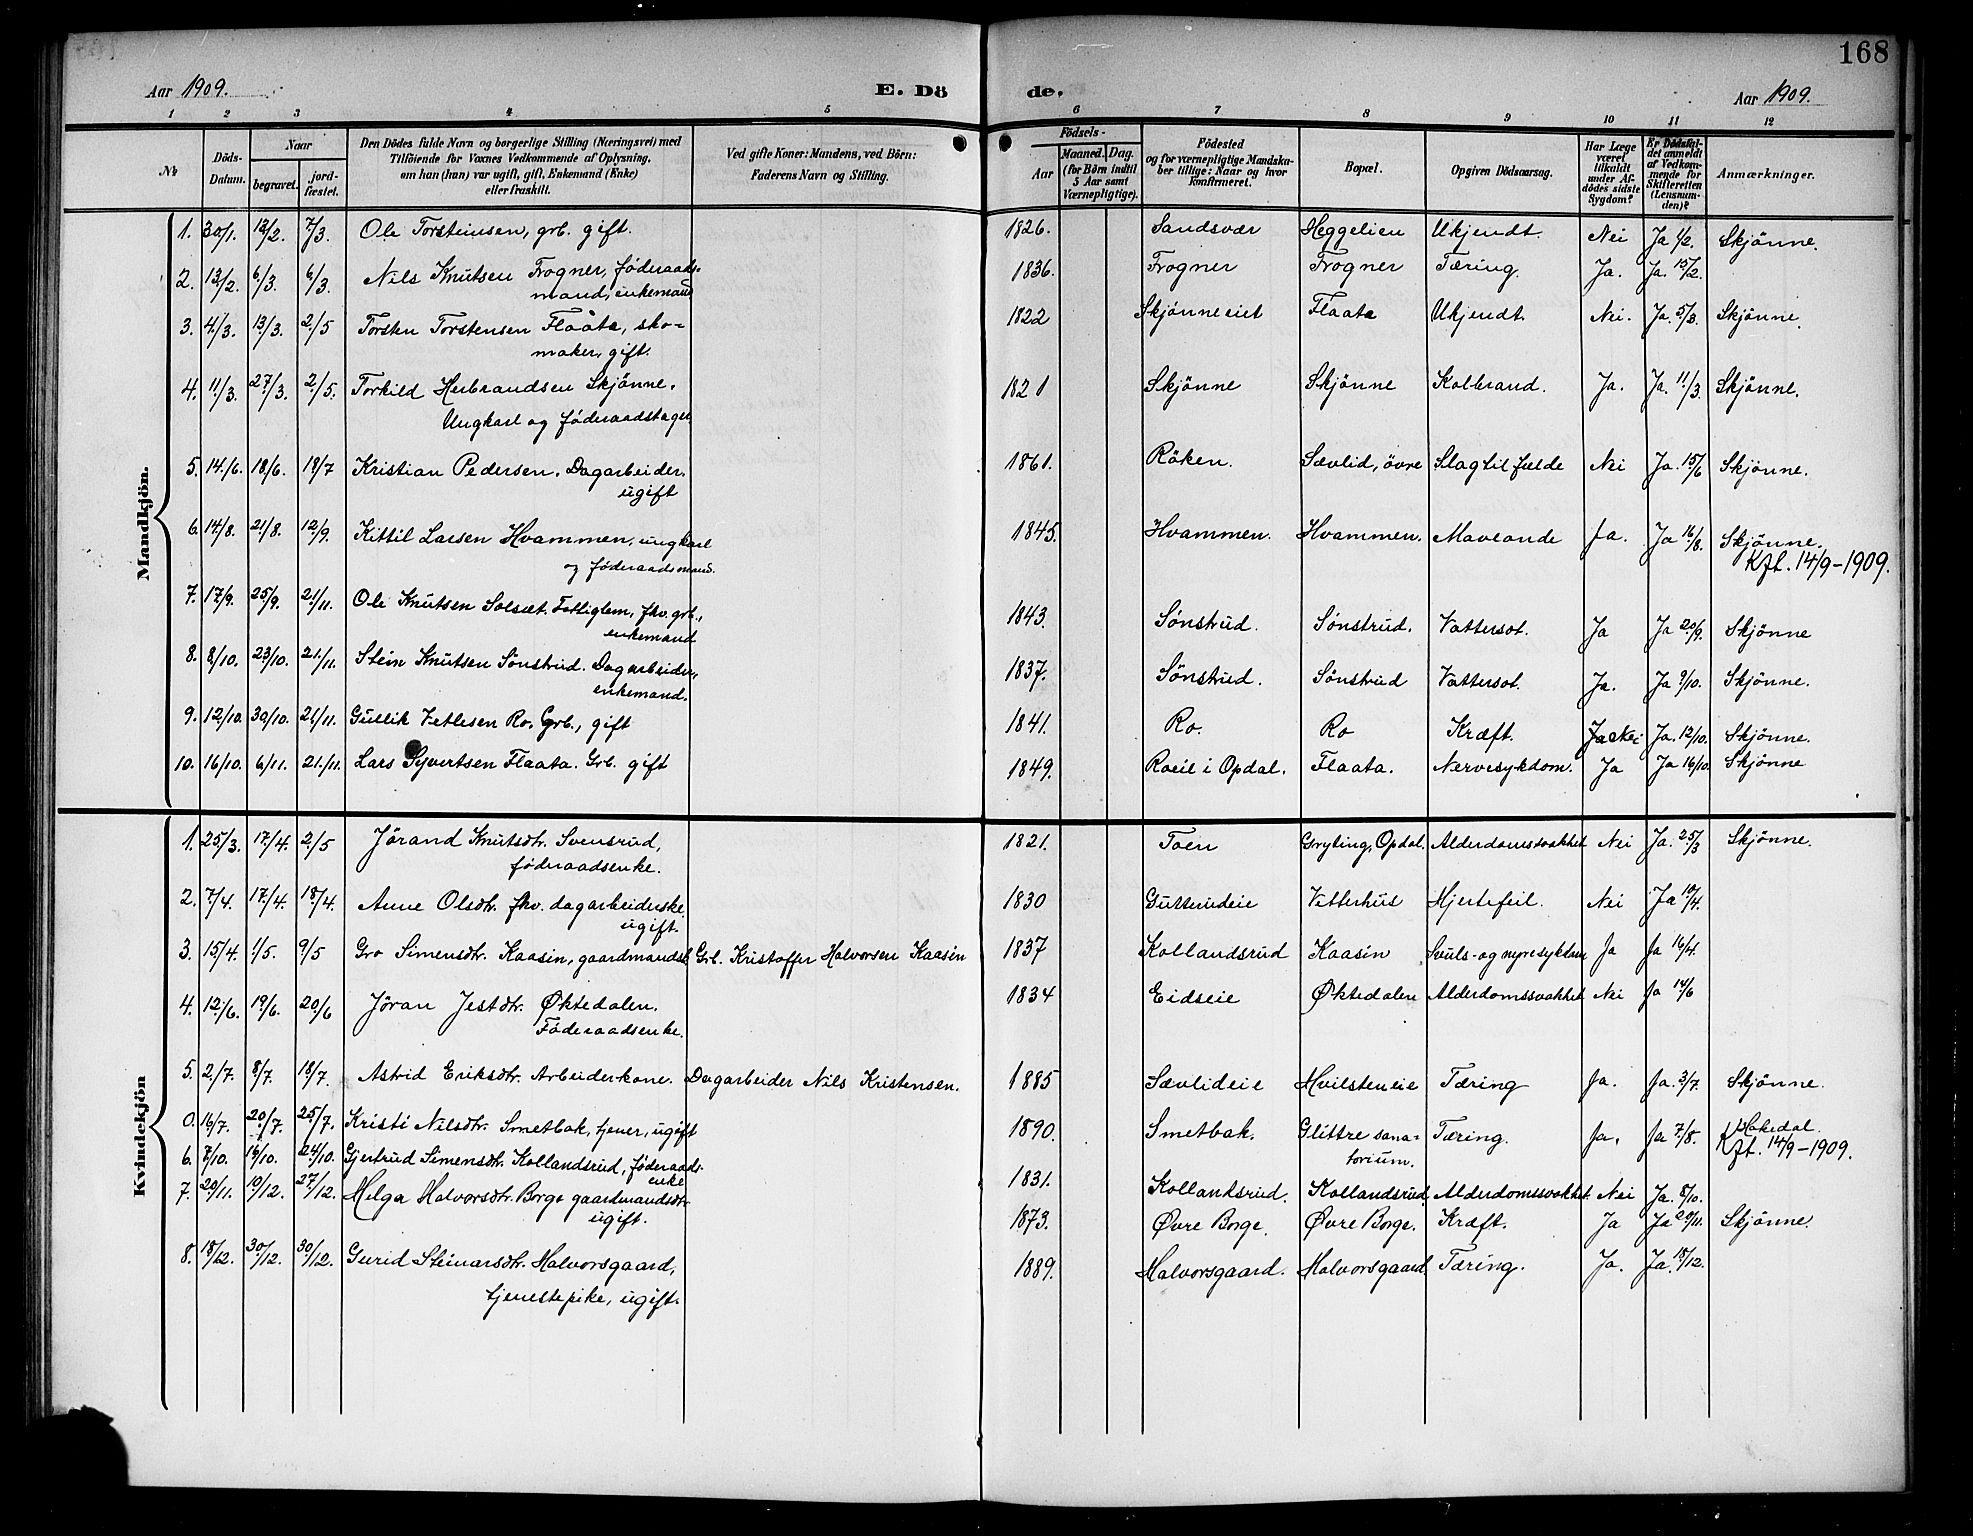 168
Aar 1909. E. Dö de. Aar 1909.
1 2 3 4 5 6 7 8 9 10 11 12
№
Döds-Datum.
Naar
begravet.
jordfæstet.
Den Dödes fulde Navn og borgerlige Stilling (Næringsvei) med
Tilföiende for Voxnes Vedkommende af Oplysning.
om han (hun) var ugift, gift, Enkemand (Enke)
eller fraskilt.
Ved gifte Koner: Mandens, ved Börn:
Faderens Navn og Stilling.
Födsels-
Aar
Maaned. Dag.
(for Börn indtil
5 Aar samt
Værnepligtige).
Födested
og for værnepligtige Mandska-
ber tillige: Naar og hvor
konfirmeret.
Bopæl.
Opgiven Dödsaarsag.
Har Læge
været
tilkaldt
under Af-
dödes sidste
Sygdom?
Er Dödsfal-
det anmeldt
af Vedkom-
mende for
Skifteretten
(Lensman-
den)?
Anmærkninger.
Mandkjön.
1. 30/1. 12/2. 7/3. Ole Torsteinsen, grb. gift. 1826. Sandsvær Heggelien Ukjendt. Nei Ja 1/2. Skjönne.
2. 13/2. 6/3. 6/3. Nils Knutsen Frogner, föderaads-
mand, enkemand 1836. Frogner Frogner Tæring. Ja. Ja. 15/2.
3. 4/3. 13/3. 2/5 Torsten Torstensen Flaata, sko-
maker, gift. 1822 Skjönneeiet Flaata Ukjendt. Nei. Ja. 5/3. Skjönne.
4. 11/3. 27/3. 2/5. Torkild Herbrandsen Skjönne.
Ungkarl og föderaadstager 1821 Skjönne Skjönne Kolbrand. Ja. Ja. 11/3. Skjönne.
5. 14/6. 18/6. 18/7 Kristian Pedersen. Dagarbeider.
ugift 1861. Röken. Sævlid, övre Slagtilfælde Nei Ja. 15/6 Skjönne.
6. 14/8. 21/8. 12/9. Kittil Larsen Hvammen, ungkarl
og föderaadsmand. 1845. Hvammen. Hvammen. Maveonde Ja. Ja 16/8. Skjönne.
Kft. 14/9-1909.
7. 17/9. 25/9. 21/11. Ole Knutsen Solsæt. Fattiglem, fhv. grb.,
enkemand 1843. Sönstrud. Sönstrud. Vattersot. Ja Ja 20/9. Skjönne
8. 8/10. 23/10. 21/11. Stein Knutsen Sönstrud. Dagarbeider,
enkemand. 1837. Sönstrud. Sönstrud Vattersot. Ja. Ja 9/10. Skjönne.
9. 12/10. 30/10. 21/11. Gullik Vetlesen Ro. Grb., gift 1841. Ro. Ro Kræft. Ja Ja. 12/10. Skjönne.
10. 16/10. 6/11. 21/11. Lars Syvertsen Flaata. Grb. gift 1849. Roeil i Opdal. Flaata. Nervesykdom. Ja Ja 16/10. Skjönne
Kvindekjön
1. 25/3. 17/4. 2/5 Jörand Knutsdtr. Svensrud,
föderaadsenke. 1821. Toen Gryting, Opdal. Alderdomssvakhet Nei Ja. 25/3 Skjönne.
2. 7/4. 17/4. 18/4. Anne Olsdtr. fhv. dagarbeiderske
ugift. 1830 Gutterudeie Vetterhus Hjertefeil. Nei Ja 10/4.
3. 15/4. 1/5. 9/5 Gro Simensdtr. Kaasin, gaardmandsk. Grb. Kristoffer Halvorsen Kaasin 1837 Kollandsrud Kaasin Svuls- og nyresykdom Ja Ja 16/4.
4. 12/6. 19/6. 20/6 Jöran Jestdtr. Øktedalen.
Föderaadsenke. 1834 Eidseie Øktedalen Alderdomssvakhet Nei Ja 14/6
5. 2/7. 8/7. 18/7. Astrid Eriksdtr. Arbeiderkone. Dagarbeider Nils Kristensen. 1885 Sævlideie Hvilsteneie Tæring Ja. Ja. 3/7. Skjönne.
0. 16/7. 20/7. 25/7. Kristi Nilsdtr. Smetbak, tjener, ugift 1890. Smetbak. Glittre sana-
torium. Tæring. Ja. Ja 7/8. Hakedal.
Kft. 14/9-1909.
6. 7/10. 14/10. 24/10. Gjertrud Simensdtr. Kollandsrud, föderaads-
enke 1831. Kollandsrud. Kollandsrud Alderdomssvakhet. Nei Ja. 8/10.
7. 20/11. 10/12. 27/12. Helga Halvorsdtr. Borge gaardmandsdtr.
ugift. 1873. Øvre Borge. Øvre Borge. Kræft. Ja Ja 20/11. Skjönne.
8. 18/12. 30/12. 30/12. Gurid Steinarsdtr. Halvorsgaard,
tjenestepike, ugift. 1889. Halvorsgaard. Halvorsgaard Tæring. Ja. Ja. 18/12.